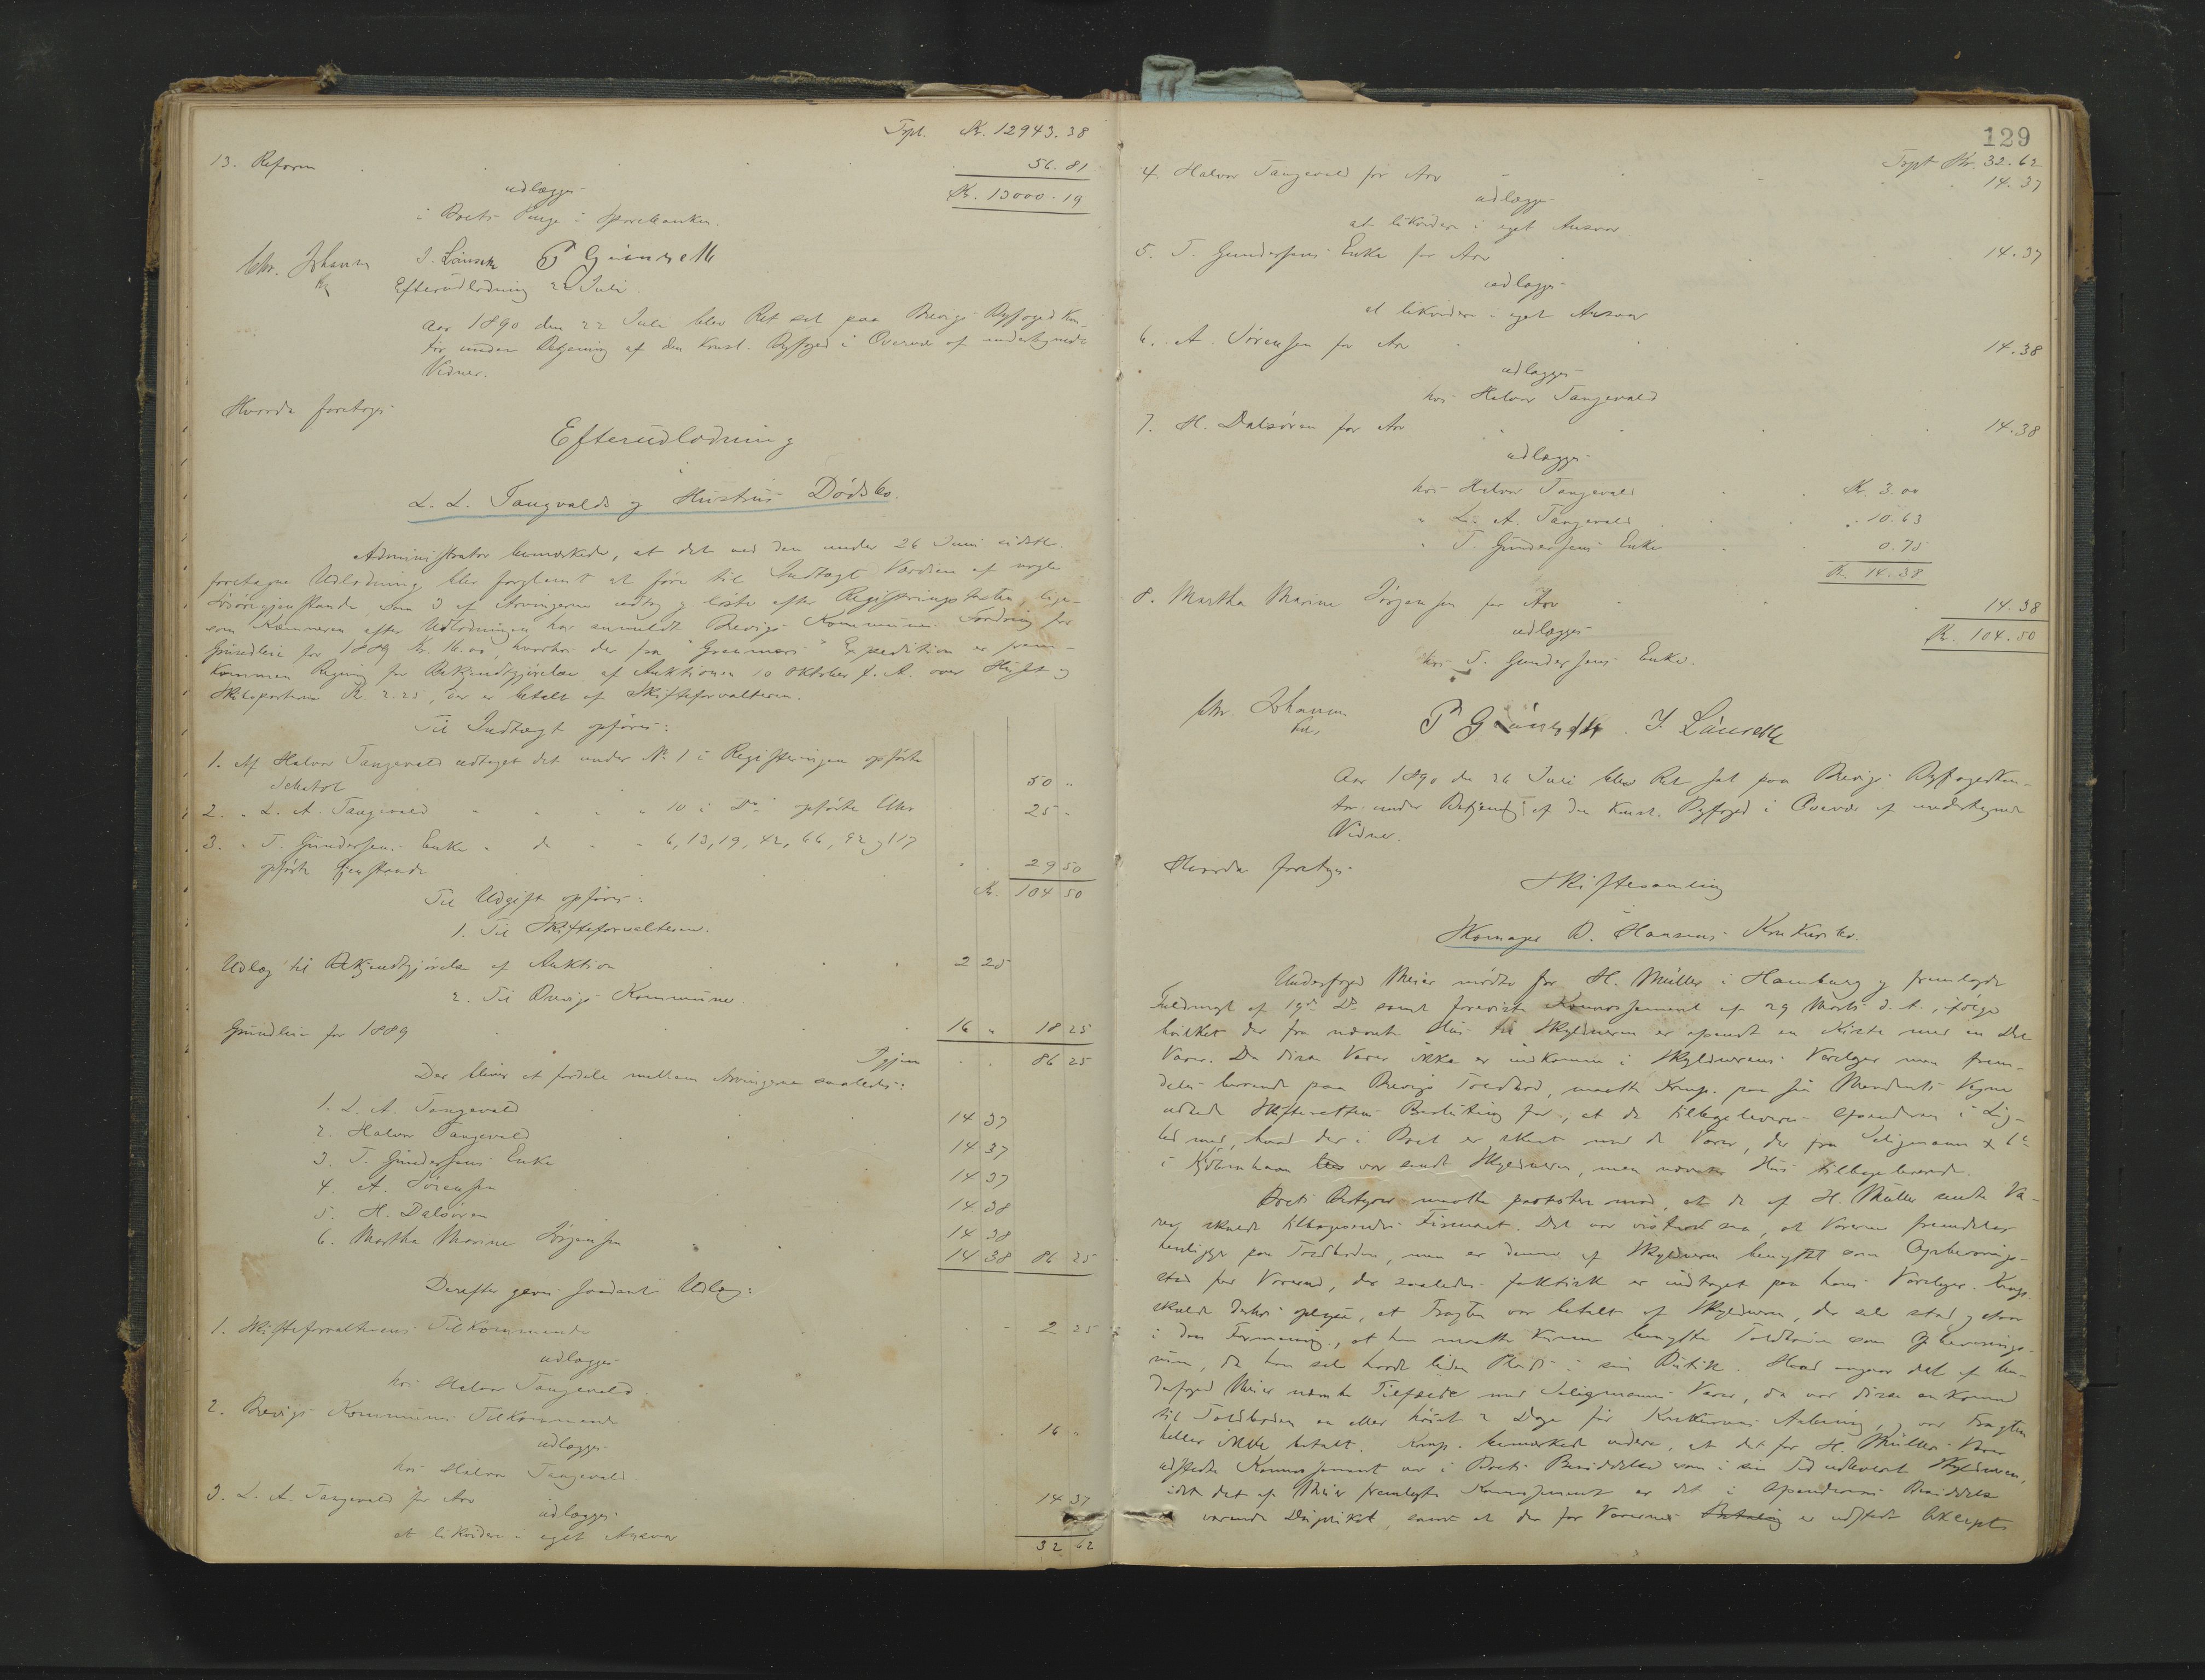 Trpt. Kr. 12943.38
13. Reform 56.81
udlægges Kr. 13000.19
i Boets Penge i Sparebanken.
Chr. Johann
Efterudlodning 22 Juli.
Aar 1890 den 22 Juli blev Ret sat paa Brevigs Byfogedkon-
tor under Betjening af den Konst. Byfoged i Overvær af undertegnede
Vidner.
Hvorda foretoges
Efterudlodning
i
L. L. Tangvalds og Hustrus Dødsbo.
Administrator bemærkede, at det ved den under 26 Juni sidstl.
foretagne Udlodning blev forglemt at føre til Indtægt Værdien af nogle
Løsøregjenstande som 3 af Arvingerne udtog og løste efter Registreringstaxten lige-
som Kæmneren efter Udlodningen har anmeldt Brevigs Kommunes Fordring for
Grundleie for 1889 Kr. 16.00, hvorhos der fra "Grenmars" Expedition er frem-
kommen Regning for Bekjendtgjørelse af Auktionen 10 Oktober f. A. over Huset og
Skibsparterne Kr 2.25, der er betalt af Skifteforvalteren.
Til Indtægt opføres:
1. Af Halvor Tangevald udtaget det under No 1 i Registreringen opførte
Schatol 50 "
2. " L. A. Tangevald " " " " 10 i Do opførte Uhr 25 "
3. " T. Gundersens Enke " de " " 6, 13, 19, 42, 66, 92 og 117
opførte Gjenstande 29 50
Kr. 104 50
Til Udgift opføres:
1. Til Skifteforvalteren.
Udlæg til Bekjendtgjørelse af Auktion 2 25
2. Til Brevigs Kommune.
Grundleie for 1889 16 " 18 25
Igjen 86 25
Der bliver at fordele mellem Arvingerne saaledes:
1. L. A. Tangevald 14 37
2. Halvor Tangevald 14 37
3. T. Gundersens Enke 14 37
4. A. Sørensen 14 38
5. H. Dalsøren 14 38
6. Martha Marine Jørgensen 14 38 86 25
Derefter gives saadant Udlæg:
1. Skifteforvalterens Tilkommende 2 25
udlægges
hos Halvor Tangevald.
2. Brevigs Kommunes Tilkommende 16 "
udlægges
hos Halvor Tangevald.
3. L. A. Tangevald for Arv 14 37
udlægges
at likvidere i eget Ansvar
32 62
129
Trpt Kr. 32.62
4. Halvor Tangevald for Arv 14.37
udlægges
at likvidere i eget Ansvar
5. T. Gundersens Enke for Arv 14.37
udlægges
at likvidere i eget Ansvar
6. A. Sørensen for Arv 14.38
udlægges
hos Halvor Tangevald
7. H. Dalsøren for Arv 14.38
udlægges
hos Halvor Tangevald Kr. 3.00
" L. A. Tangevald " 10.63
" T. Gundersens Enke 0.75
Kr. 14.38
8. Martha Marine Jørgensen for Arv 14.38
udlægges Kr. 104.50
hos T. Gundersens Enke.
Chr. Johann
Aar 1890 den 26 Juli blev Ret sat paa Brevigs Byfogedkon-
tor under Betjening af den Konst. Byfoged i Overvær af undertegnede
Vidner.
Hvorda foretoges
Skiftesamling
i
Skomager O. Hansens Konkursbo.
Underfoged Meier mødte for H. Müller i Hamburg og fremlagde
Fuldmagt af 19de Ds samt foreviste Konnossement af 29 Marts d. A., ifølge
hvilket der fra nævnte Hus til Skyldneren er afsendt en Kiste med en Del
Varer. Da disse Varer ikke er indkomne i Skyldnerens Varelager men frem-
deles beroende paa Brevigs Toldbod, maatte Komp. paa sin Mandants Vegne
udbede Skifterettens Beslutning for, at de tilbageleveres Afsenderen i Lig-
hed med, hvad der i Boet er skeet med de Varer, der fra Seligmann & Co
i Kjøbenhavn var sendt Skyldneren, men nævnte Hus tilbageleverede.
Boets Bestyrer maatte protestere mod, at de af H. Müller sendte Va-
rer skulde tilbagesendes Firmaet. Det var vistnok saa, at Varerne fremdeles
henligger paa Toldboden, men er denne af Skyldneren benyttet som Opbevarings-
sted for Varerne, der saaledes faktisk er indtaget paa hans Varelager. Komp.
skulde derhos oplyse, at Fragten var betalt af Skyldneren, der selv stod og staar
i den Formening, at han maatte kunne benytte Toldboden som Opbevarings-
rum, da han selv havde liden Plads i sin Butik. Hvad angaar det af Un-
derfoged Meier nævnte Tilfælde med Seligmanns Varer, da var disse ankomne
til Toldboden en eller høist 2 Dage før Konkursens Aabning, og var Fragten
heller ikke betalt. Komp. bemærkede videre, at det for H. Müllers Varer
udstedte Konnossement var i Boets Besiddelse som i sin Tid udleveret Skyldneren,
idet det af Meier fremlagte Konnossement er det i Afsenderens Besiddelse
værende Duplikat, samt at der for Varernes Betaling er udstedt Accept